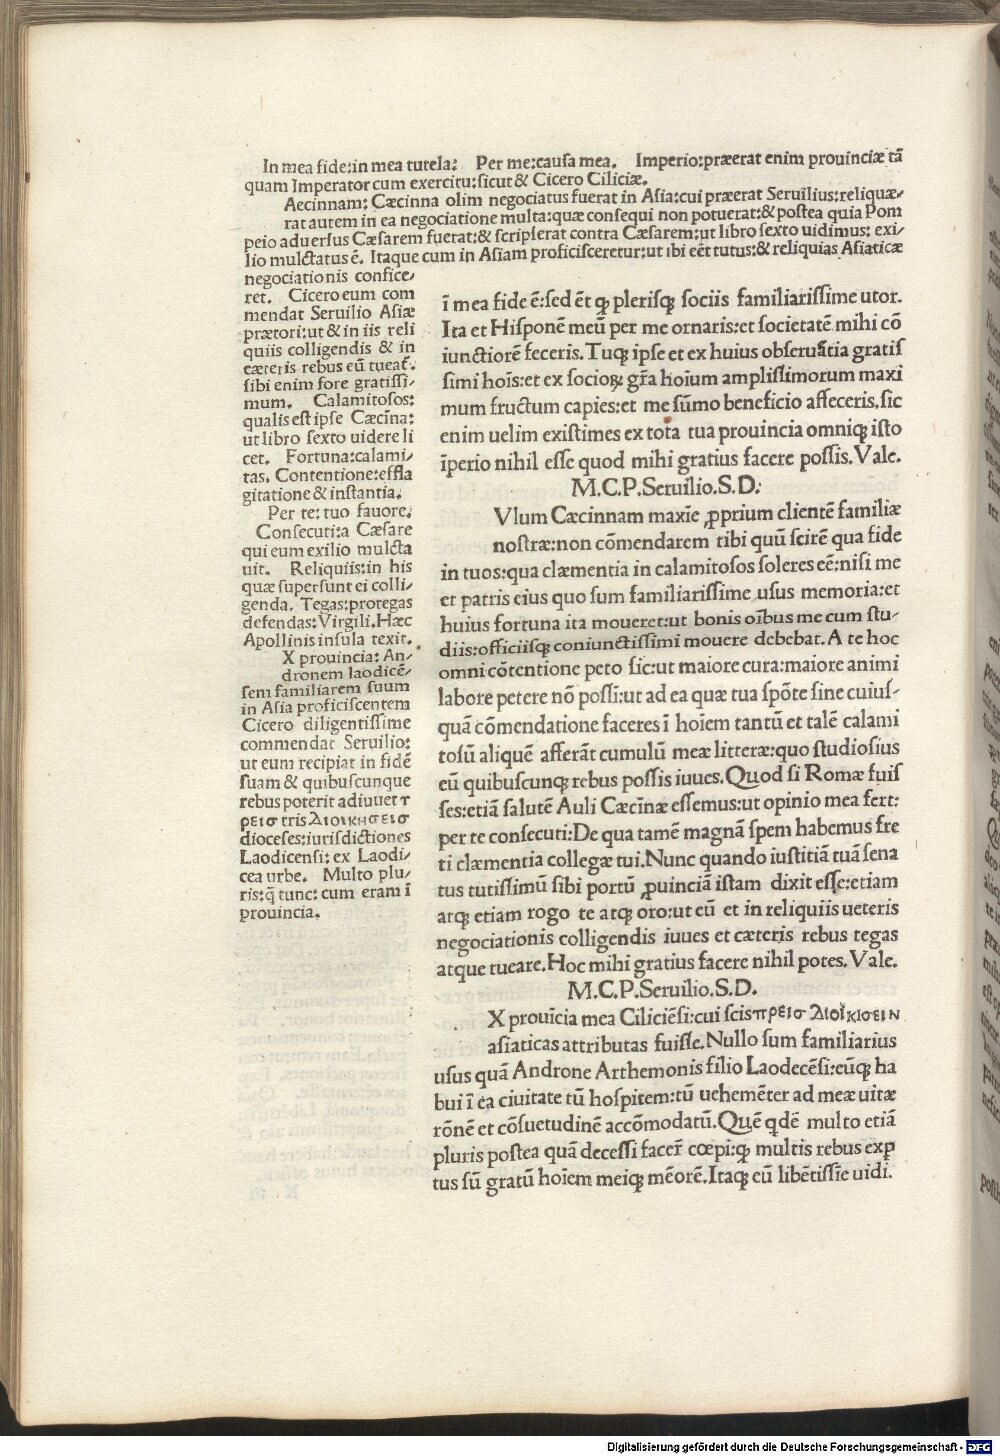 In mea fide:in mea tutela: Per me:causa mea. Imperio:præerat enim prouinciæ tã
quam Imperator cum exercitu:sicut & Cicero Ciliciæ.
Aecinnam: Cæcinna olim negociatus fuerat in Asia:cui præerat Seruilius:reliquæ-
rat autem in ea negociatione multa:quæ consequi non potuerat:& postea quia Pom
peio aduersus Cæsarem fuerat:& scripserat contra Cæsarem:ut libro sexto uidimus: exi-
lio mulctatus ē. Itaque cum in Asiam proficisceretur:ut ibi eēt tutus:& reliquias Asiaticæ
negociationis confice-
ret. Cicero eum com
mendat Seruilio Asiæ
prætori:ut & in iis reli
quiis colligendis & in
cæteris rebus eū tueat.
sibi enim fore gratissi-
mum. Calamitosos:
qualis est ipse Cæcina:
ut libro sexto uidere li
cet. Fortuna:calami-
tas. Contentione:effla
gitatione & instantia.
Per te: tuo fauore.
Consecuti:a Cæsare
qui eum exilio mulcta
uit. Reliquiis:in his
quæ supersunt ei colli-
genda. Tegas:protegas
defendas:Virgili. Hæc
Apollinis insula texit.
X prouincia: An-
dronem laodicē-
sem familiarem suum
in Asia proficiscentem
Cicero diligentissime
commendat Seruilio:
ut eum recipiat in fidē
suam & quibuscunque
rebus poterit adiuuet τ
ρεισ tris Διοικησεισ
dioceses:iurisdictiones
Laodicensi: ex Laodi-
cea urbe. Multo plu-
ris:q̄ tunc: cum eram ī
prouincia.
ī mea fide ē:sed ēt qꝫ plerisqꝫ sociis familiarissime utor.
Ita et Hisponē meū per me ornaris:et societatē mihi cō
iunctiorē feceris. Tuqꝫ ipse et ex huius obseruãtia gratis
simi hoīs:et ex socioꝝ gr̃a hoīum amplissimorum maxi
mum fructum capies:et me sūmo beneficio affeceris. sic
enim uelim existimes ex tota tua prouincia omniqꝫ isto
īperio nihil esse quod mihi gratius facere possis. Vale.
M.C.P.Seruilio.S.D:
Vlum Cæcinnam maxīe ꝓprium clientē familiæ
nostræ:non cōmendarem tibi quū scirē qua fide
in tuos:qua clæmentia in calamitosos soleres eē:nisi me
et patris eius quo sum familiarissime usus memoria:et
huius fortuna ita moueret:ut bonis oībus me cum stu-
diis:officiisqꝫ coniunctissimi mouere debebat. A te hoc
omni cōtentione peto sic:ut maiore cura:maiore animi
labore petere nō possi:ut ad ea quæ tua spōte sine cuius-
quā cōmendatione faceres ī hoīem tantū et talē calami
tosū aliquē afferāt cumulū meæ litteræ:quo studiosius
eū quibuscunqꝫ rebus possis iuues. Quod si Romæ fuis
ses:etiā salutē Auli Cæcinæ essemus:ut opinio mea fert:
per te consecuti:De qua tamē magnā spem habemus fre
ti clæmentia collegæ tui. Nunc quando iustitiā tuā sena
tus tutissimū sibi portū ꝓuinciā istam dixit esse:etiam
atqꝫ etiam rogo te atqꝫ oro:ut eū et in reliquiis ueteris
negociationis colligendis iuues et cæteris rebus tegas
atque tueare. Hoc mihi gratius facere nihil potes. Vale.
M.C.P.Seruilio.S.D.
X prouīcia mea Ciliciēsi:cui scis πρεισ Διοικισειν
asiaticas attributas fuisse. Nullo sum familiarius
usus quā Androne Arthemonis filio Laodecēsi:eūqꝫ ha
bui ī ea ciuitate tū hospitem:tū uehemēter ad meæ uitæ
rōnē et cōsuetudinē accōmodatū. Quē qdē multo etiā
pluris postea quā decessi facer̃ cœpi:qꝫ multis rebus exp
tus sū gratū hoīem meiqꝫ mēorē. Itaqꝫ eū libētissīe uidi.
Digitalisierung gefördert durch die Deutsche Forschungsgemeinschaft - DFG